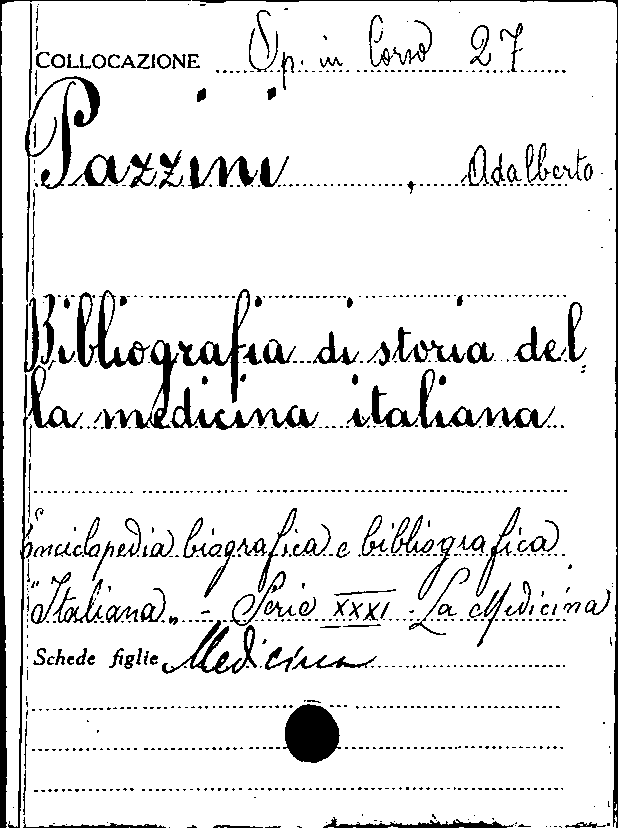 COLLOCAZIONE Op. in Corso 27
Pazzini, Adalberto
Bibliografia di storia del-
la medicina italiana
Enciclopedia biografica e bibliografica
"Italiana„ - Serie XXXI - La Medicina
Schede figlie Medicina